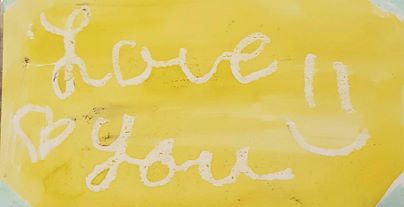 Love
You